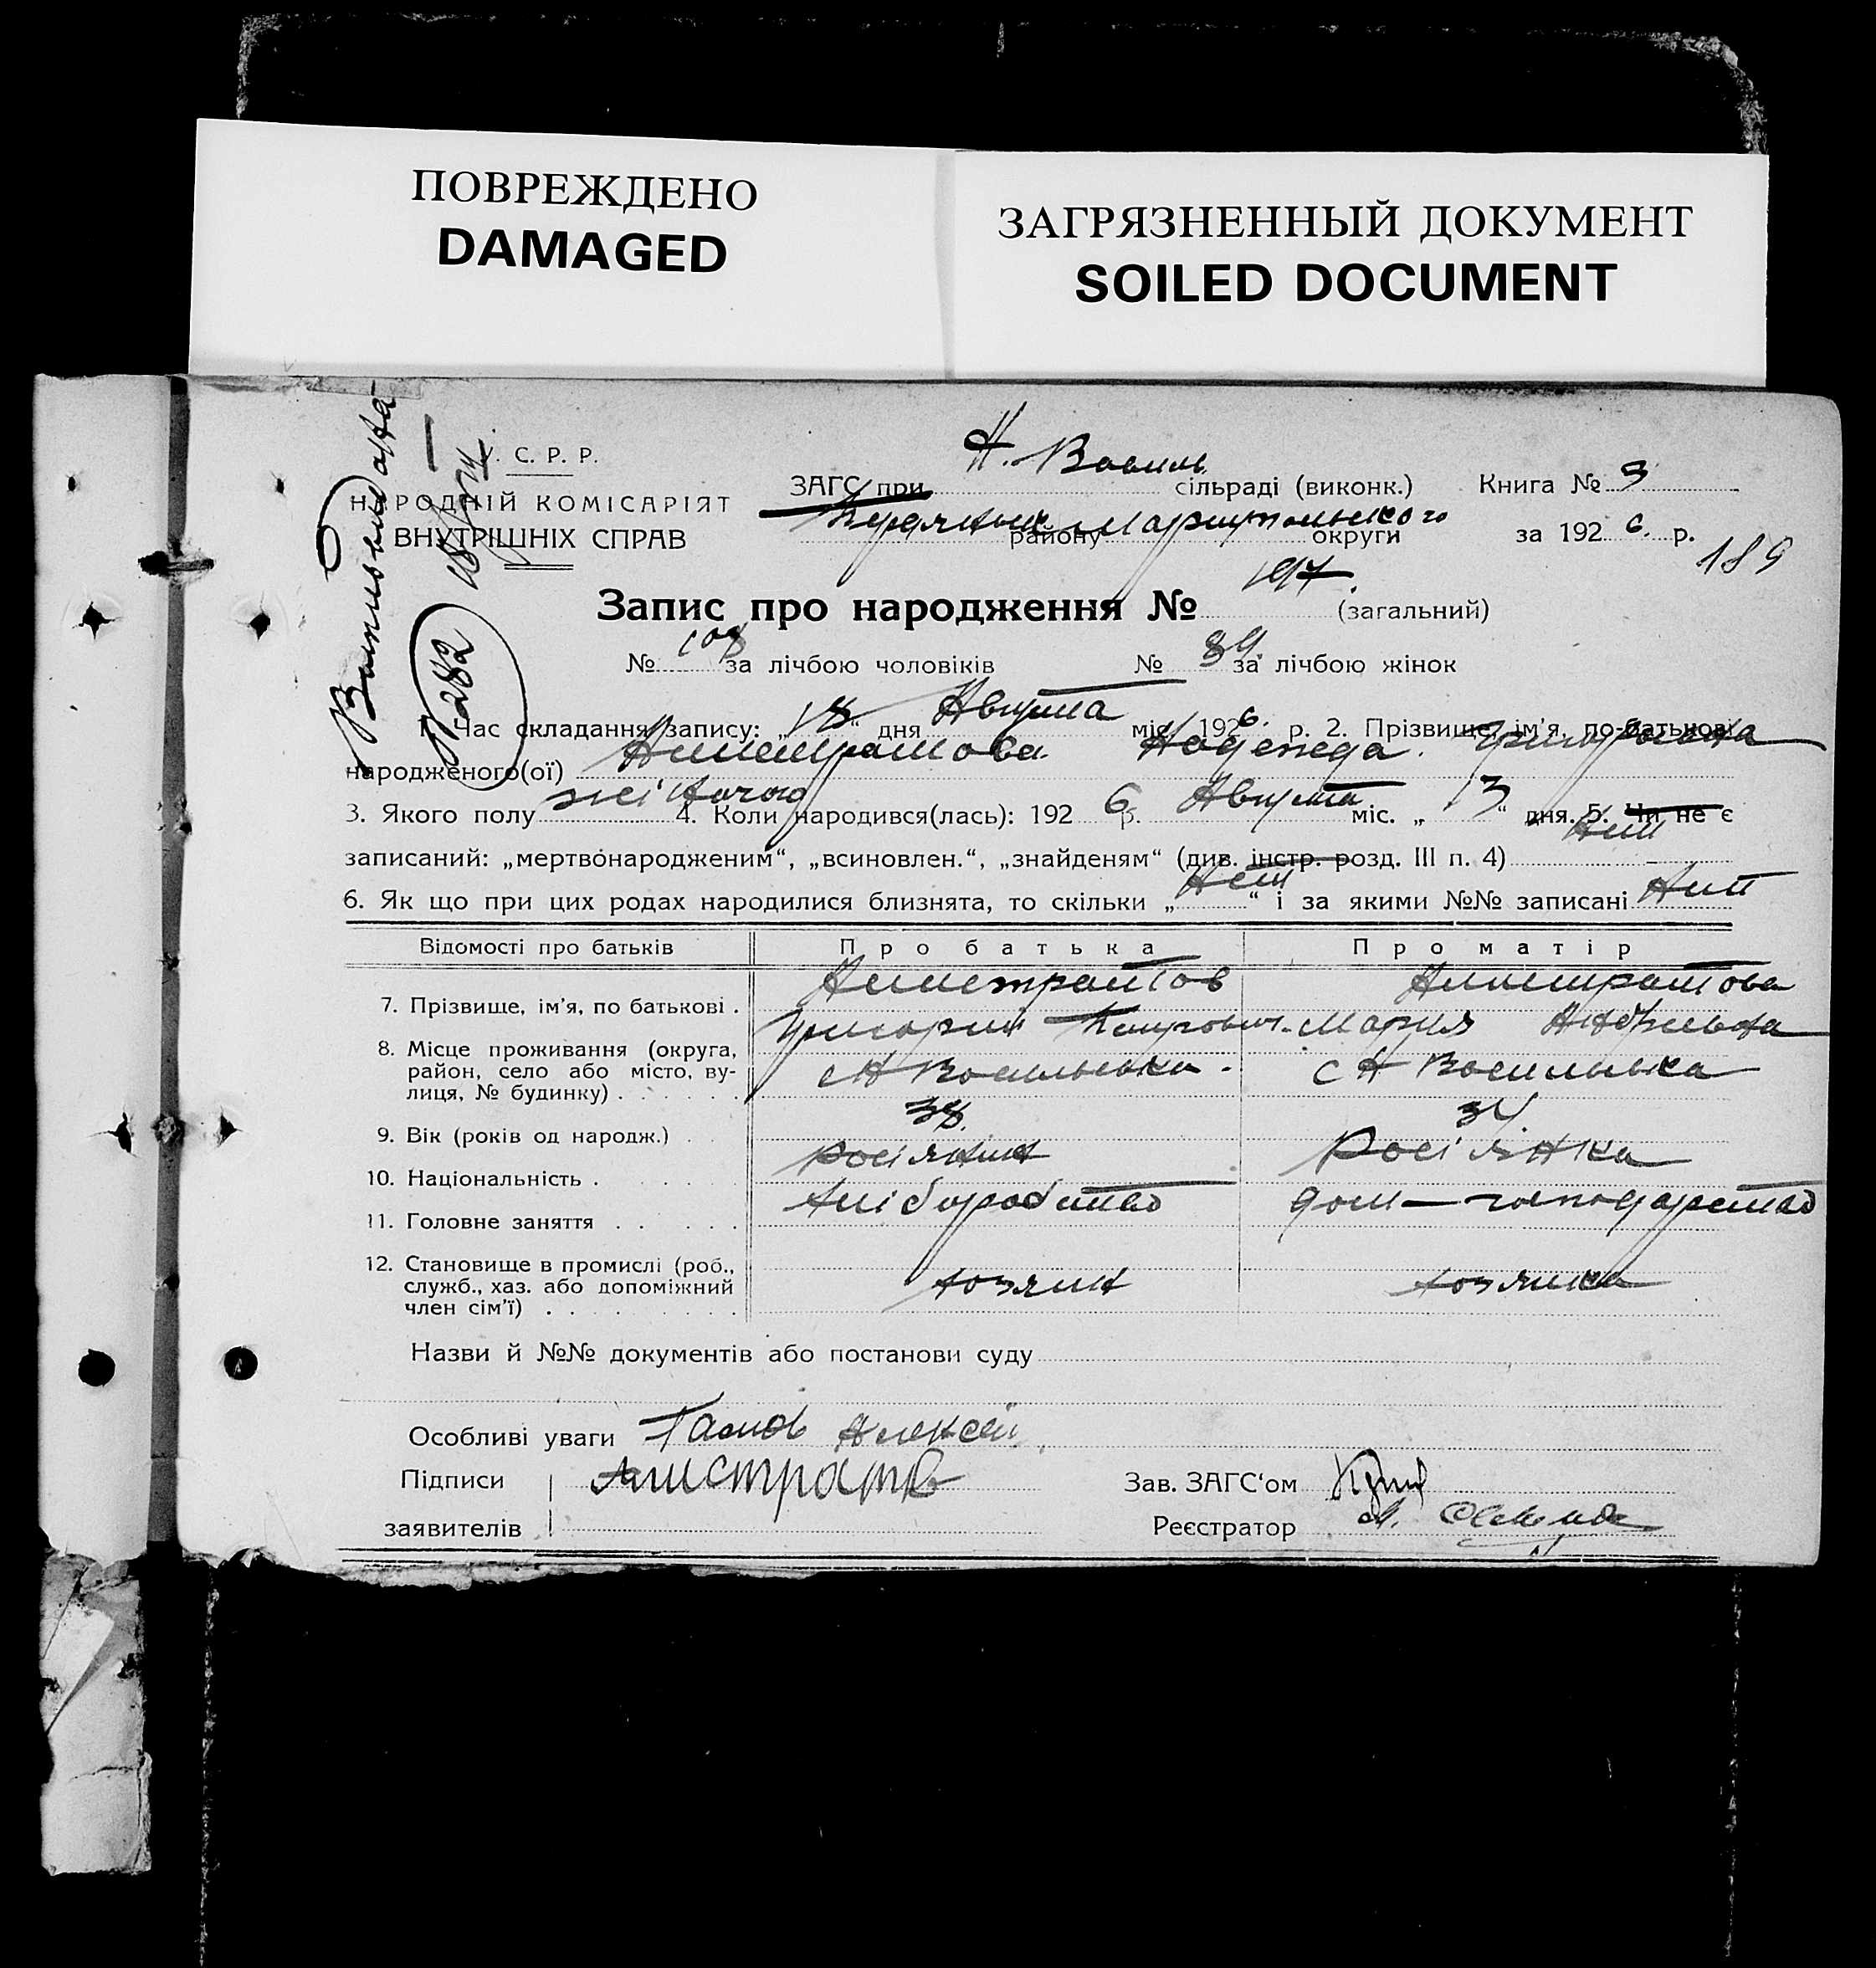 ПОВРЕЖДЕНО
DAMAGED
ЗАГРЯЗНЕННЫЙ ДОКУМЕНТ
SOILED DOCUMENT
У. С. Р. Р.
НАРОДНІЙ КОМІСАРІЯТ
ВНУТРІШНІХ СПРАВ
Н. Василь
ЗАГС при сільраді (виконк.) Книга № 3
району Мариупольского округи за 192 6. р.
189
Запис про народження № 197. (загальний)
№ 108 за лічбою чоловіків № 89 за лічбою жінок
282
1. Час складання запису: „ 18 “ дня Августа міс. 192 6. р. 2. Прізвище, ім'я, по-батькові
народженого(ої) Надежда
3. Якого полу жіночого 4. Коли народився(лась): 192 6 р. Августа міс. „ 13 “ дня. 5. Чи не є
записаний: „мертвонародженим“, „всиновлен.“, „знайденям“ (див. інстр. розд. III п. 4) Нет
6. Як що при цих родах народилися близнята, то скільки „ Нет “ і за якими №№ записані Нет
Відомості про батьків Про батька Про матір
7. Прізвище, ім'я, по батькові .
Григорий Мария
8. Місце проживання (округа, район, село або місто, вулиця, № будинку) . . . . . . с Н Васильевка . с Н Васильевка
9. Вік (років од народж.) . . 38. 34.
10. Національність . . . . . росіянин Росіянка
11. Головне заняття . . . . . . хліборобство дом — господарство
12. Становище в промислі (роб., служб., хаз. або допоміжний член сім'ї) . . . . . . . . . хозяин хозяйка
Назви й №№ документів або постанови суду
Особливі уваги Алексей
Підписи
заявителів
Зав. ЗАГС'ом
Реєстратор